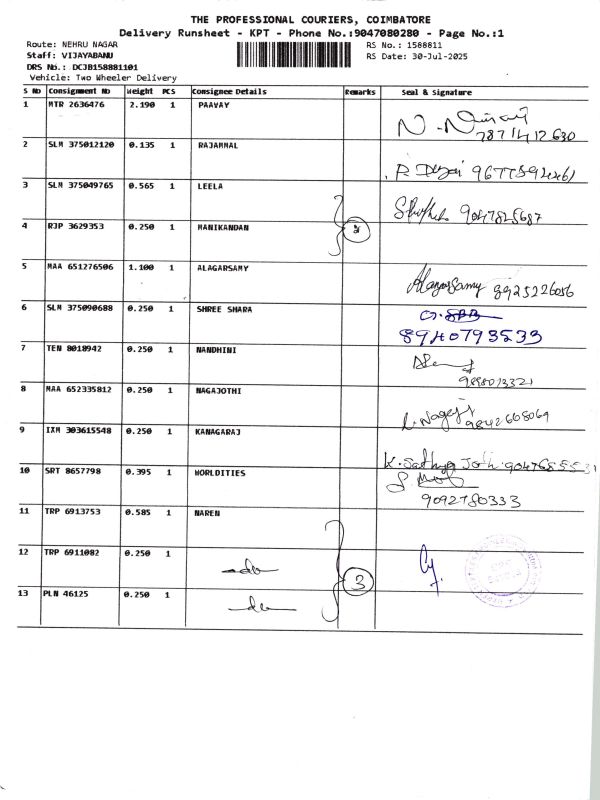 THE PROFESSIONAL COURIERS, COIMBATORE
Delivery Runsheet - KPT - Phone No.:9047080280 - Page No.:1
Route: NEHRU NAGAR RS No.: 1588811
Staff: VIJAYABANU RS Date: 30-Jul-2025
DRS No.: DCJB158881101
Vehicle: Two Wheeler Delivery
S No Consignment No Weight PCS Consignee Details Remarks Seal & Signature
1 MTR 2636476 2.190 1 PAAVAY
7871412630
2 SLM 375012120 0.135 1 RAJAMMAL
3 SLM 375049765 0.565 1 LEELA
9047825687
4 RJP 3629353 0.250 1 MANIKANDAN 2
5 MAA 651276506 1.100 1 ALAGARSAMY
AlagarSamy 8925226056
6 SLM 375090688 0.250 1 SHREE SHARA
8940793533
7 TEN 8018942 0.250 1 NANDHINI
8 MAA 652335812 0.250 1 NAGAJOTHI
9842608069
9 IXM 303615548 0.250 1 KANAGARAJ
K. Sathya Jothi
10 SRT 8657798 0.395 1 WORLDITIES
9092780333
11 TRP 6913753 0.585 1 NAREN
12 TRP 6911082 0.250 1 do
3
13 PLN 46125 0.250 1 do